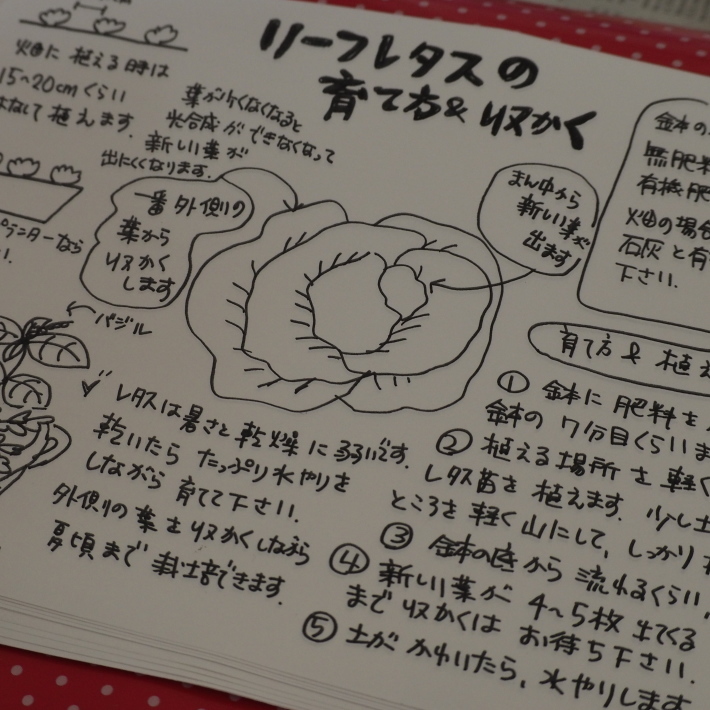 リーフレタスの
育て方&収かく
畑に植える時は
15~20cmくらい
はなして植えます.
葉が少くなくなると
光合成ができなくなって
新しい葉が
出にくくなります.
一番外側の
葉から
収かく
します
まん中から
新しい葉が
出ます
プランターなら
バジル
レタスは暑さと乾燥に弱いです.
乾いたらたっぷり水やりを
しながら育てて下さい.
外側の葉を収かくしながら
夏頃まで栽培できます.
鉢の
無肥料
有機肥
畑の場合
石灰と有
下さい.
育て方&植え
① 鉢に肥料を
鉢の7分目くらいま
② 植える場所を軽く
レタス苗を植えます. 少し土
ところを軽く山にして, しっかり
③ 鉢の底から流れるくらい,
④ 新しい葉が4~5枚出てくる
まで収かくはお待ち下さい.
⑤ 土がかわいたら, 水やりします